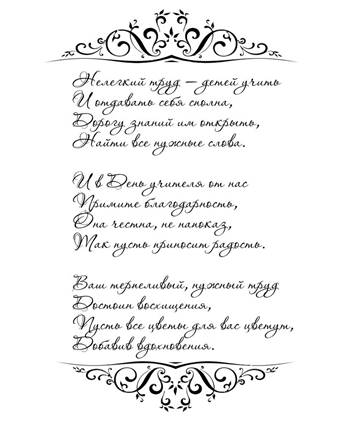 Нелегкий труд – детей учить
И отдавать себя сполна,
Дорогу знаний им открыть,
Найти все нужные слова.

И в День учителя от нас
Примите благодарность,
Она честна, не напоказ,
Так пусть приносит радость.

Ваш терпеливый, нужный труд
Достоин восхищения,
Пусть все цветы для вас цветут,
Добавив вдохновения.